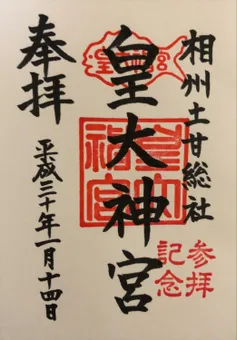 相州土甘総社
皇大神宮
参拝
記念
奉拝
平成三十年一月十四日